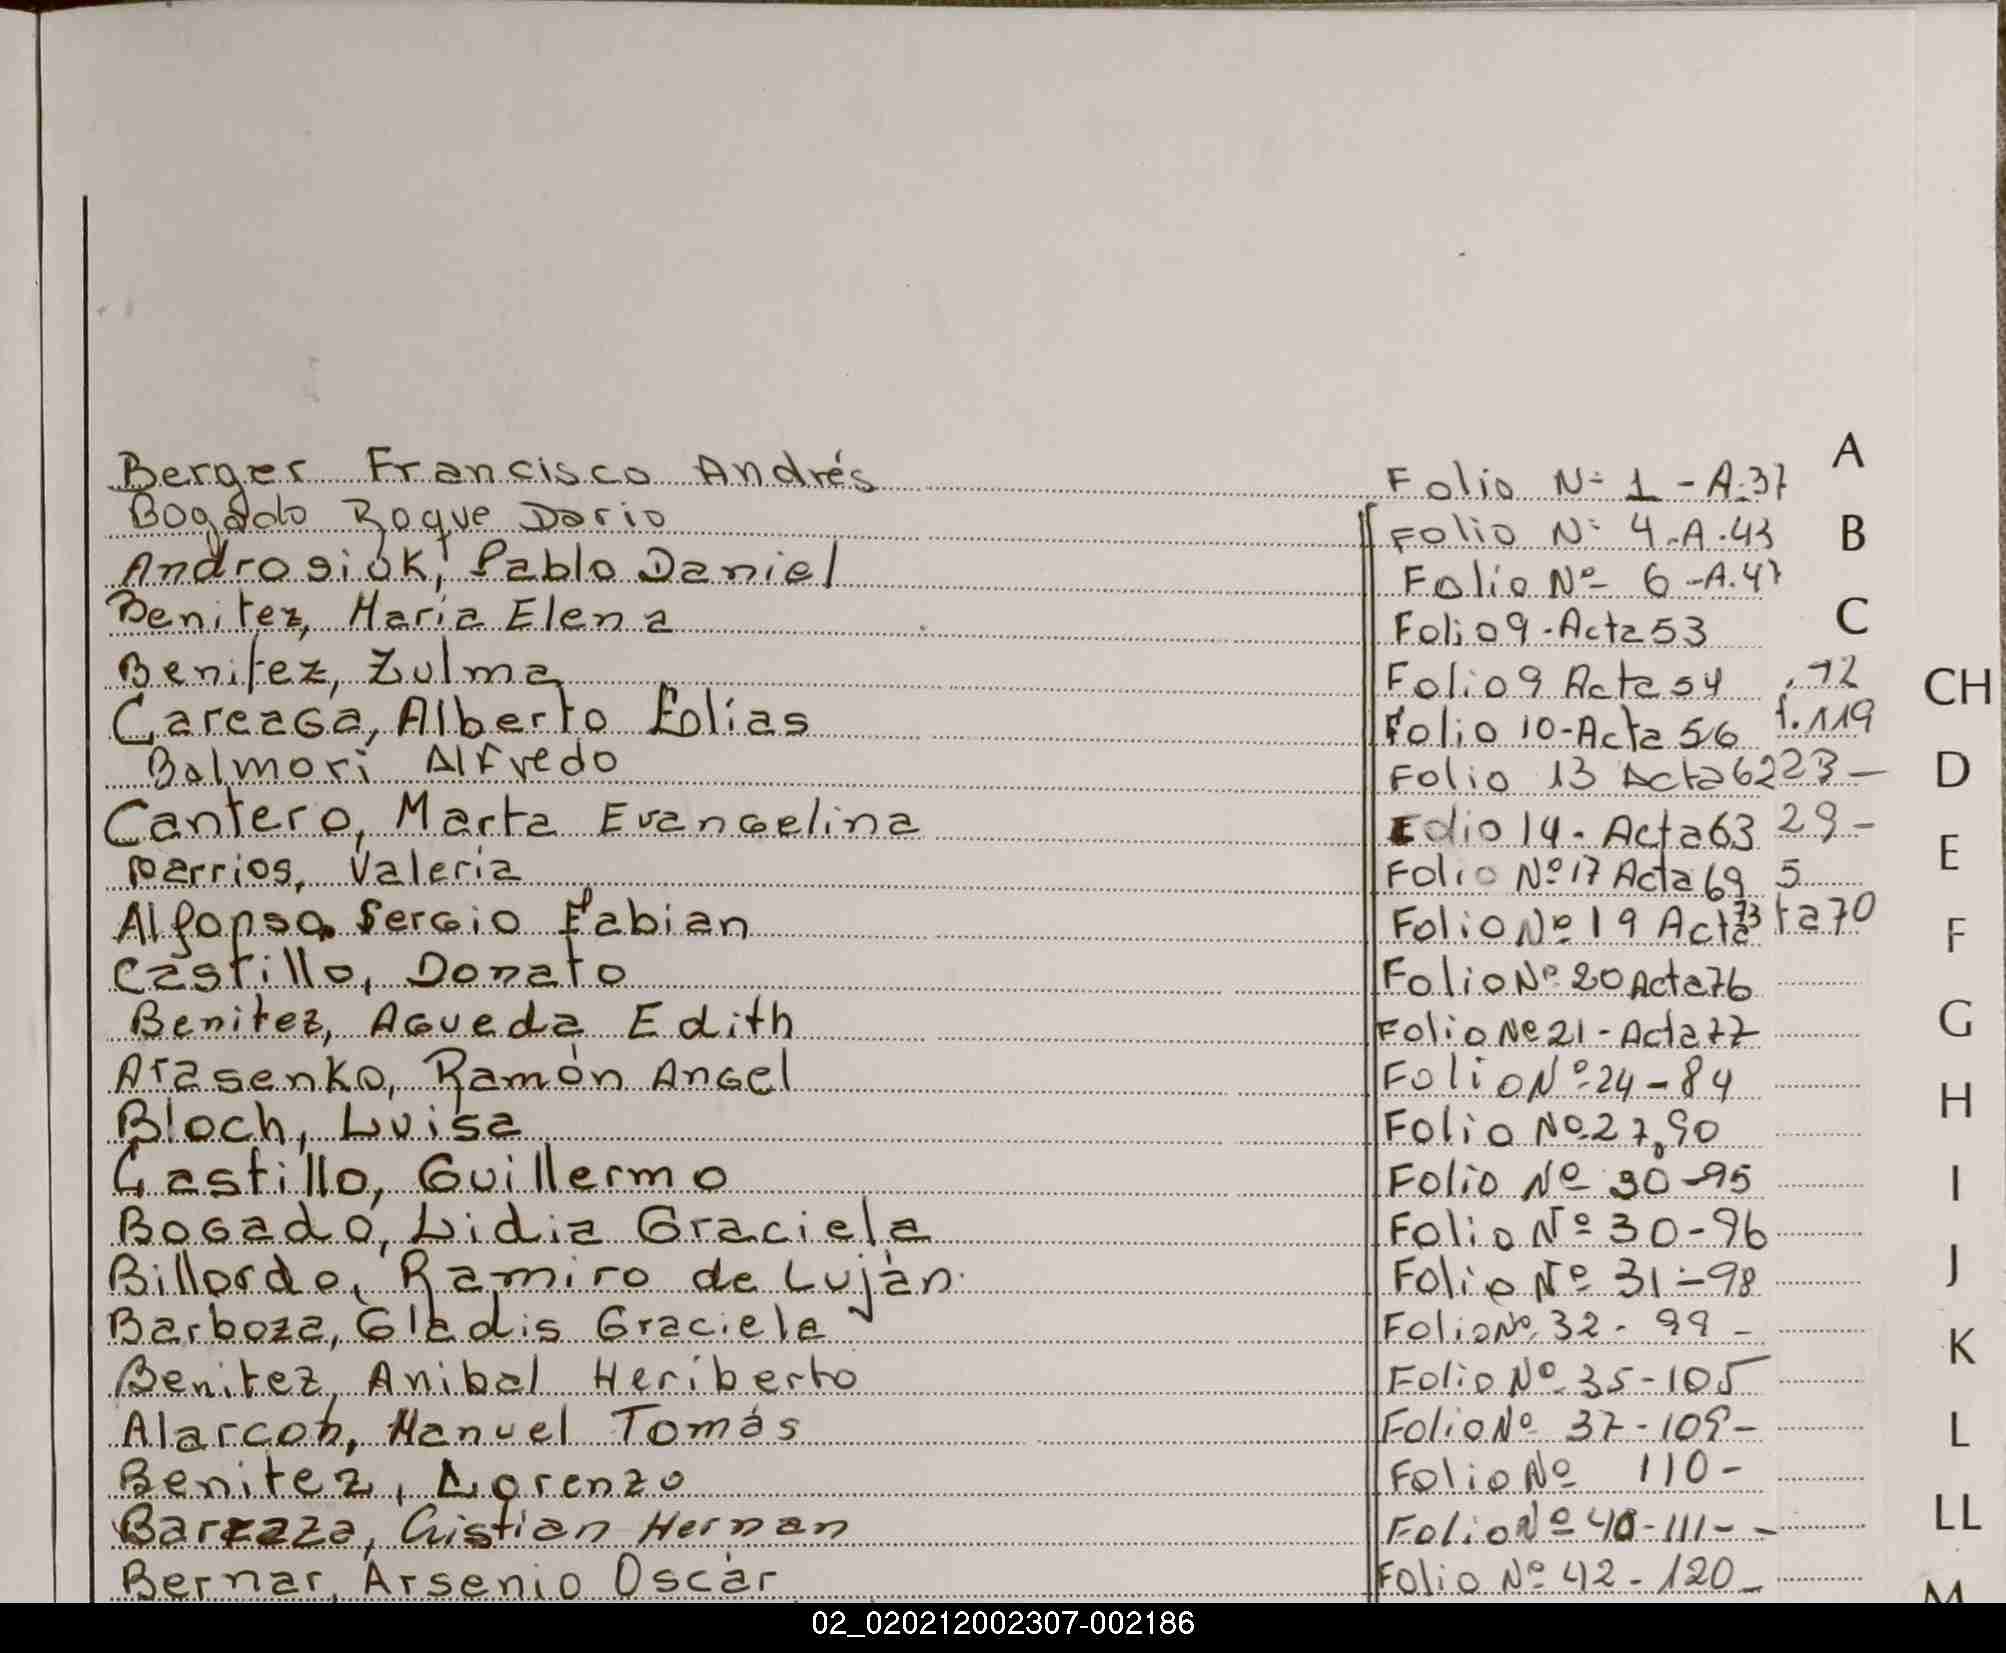 Berger Francisco Andrés Folio Nº 1 - A.37
A
Bogado Roque Dario Folio Nº 4.A.43
B
Androsiuk, Pablo Daniel Folio Nº 6 -A.47
Benitez, Maria Elena Folio 9 - Acta 53
C
Benitez, Zulma Folio 9 Acta 54 .12
CH
Careaga, Alberto Eolias Folio 10 - Acta 56 f.119
Balmori Alfredo Folio 13 Acta 62 23 -
D
Cantero, Marta Evangelina Folio 14 - Acta 63 29 -
E
Barrios, Valeria Folio Nº 17 Acta 69 5
Alfonso Sergio Fabian Folio Nº 19 Acta 73 ta 70
F
Castillo, Donato Folio Nº 20 Acta 76
Benitez, Agueda Edith Folio Nº 21 - Acta 77
G
Arasenko, Ramón Angel Folio Nº 24 - 84
H
Bloch, Luisa Folio Nº 27, 90
Castillo, Guillermo Folio Nº 30 - 95
I
Bogado, Lidia Graciela Folio Nº 30 - 96
Billordo, Ramiro de Luján Folio Nº 31 - 98
J
Barboza, Gladis Graciela Folio Nº 32 - 99 -
K
Benitez, Anibal Heriberto Folio Nº 35 - 105
Alarcon, Manuel Tomás Folio Nº 37 - 109 -
L
Benitez, Lorenzo Folio Nº 110 -
Barraza, Cristian Hernan Folio Nº 40 - 111 - -
LL
Bernar, Arsenio Oscar Folio Nº 42 - 120 -
M
02_020212002307-002186